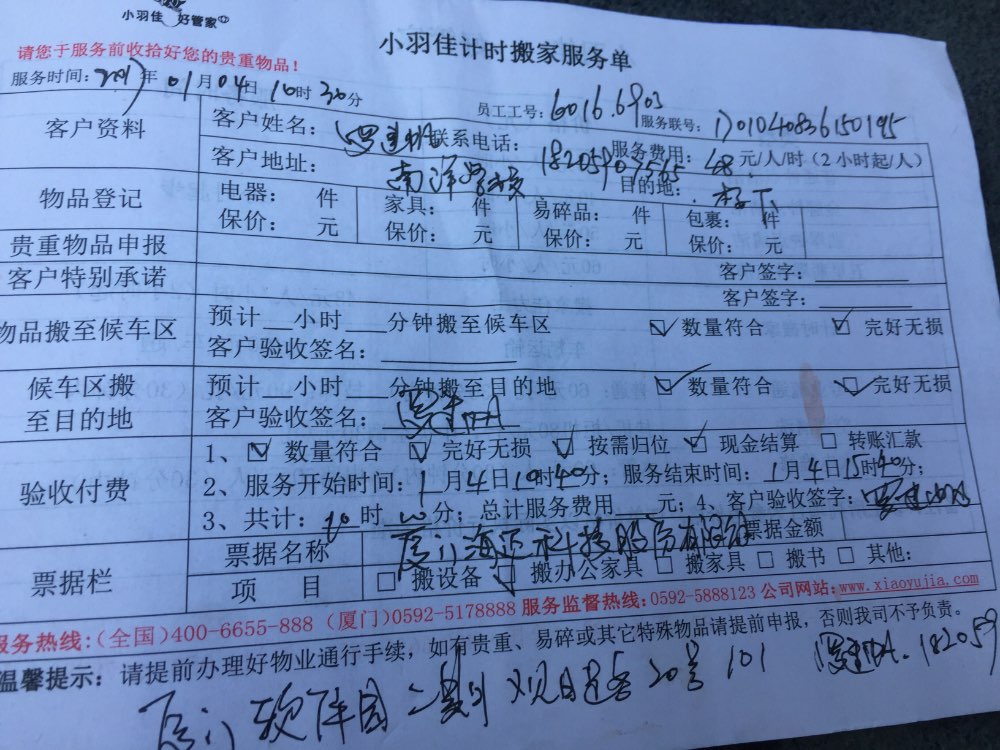 小羽佳 好管家
小羽佳计时搬家服务单
请您于服务前收拾好您的贵重物品！
服务时间：2017年01月04日10时30分 员工工号：6016.6903 服务联号：
客户资料 客户姓名： 联系电话： 服务费用：48元/人/时（2小时起/人）
客户地址：南洋学校 目的地：
物品登记 电器： 件 家具： 件 易碎品： 件 包裹： 件
保价： 元 保价： 元 保价： 元 保价： 元
贵重物品申报 客户签字：
客户特别承诺 客户签字：
物品搬至候车区 预计 小时 分钟搬至候车区 数量符合 完好无损
客户验收签名：
候车区搬至目的地 预计 小时 分钟搬至目的地 数量符合 完好无损
客户验收签名：
验收付费 1、 数量符合 完好无损 按需归位 现金结算 转账汇款
2、服务开始时间：1月4日10时40分；服务结束时间：1月4日15时40分；
3、共计： 时 分；总计服务费用 元；4、客户验收签字：
票据栏 票据名称 票据金额
项 目 搬设备 搬办公家具 搬家具 搬书 其他：
服务热线：（全国）400-6655-888（厦门）0592-5178888 服务监督热线：0592-5888123 公司网站：www.xiaoyujia.com
温馨提示：请提前办理好物业通行手续，如有贵重、易碎或其它特殊物品请提前申报，否则我司不予负责。
厦门软件园二期观日路 20号 101 182059